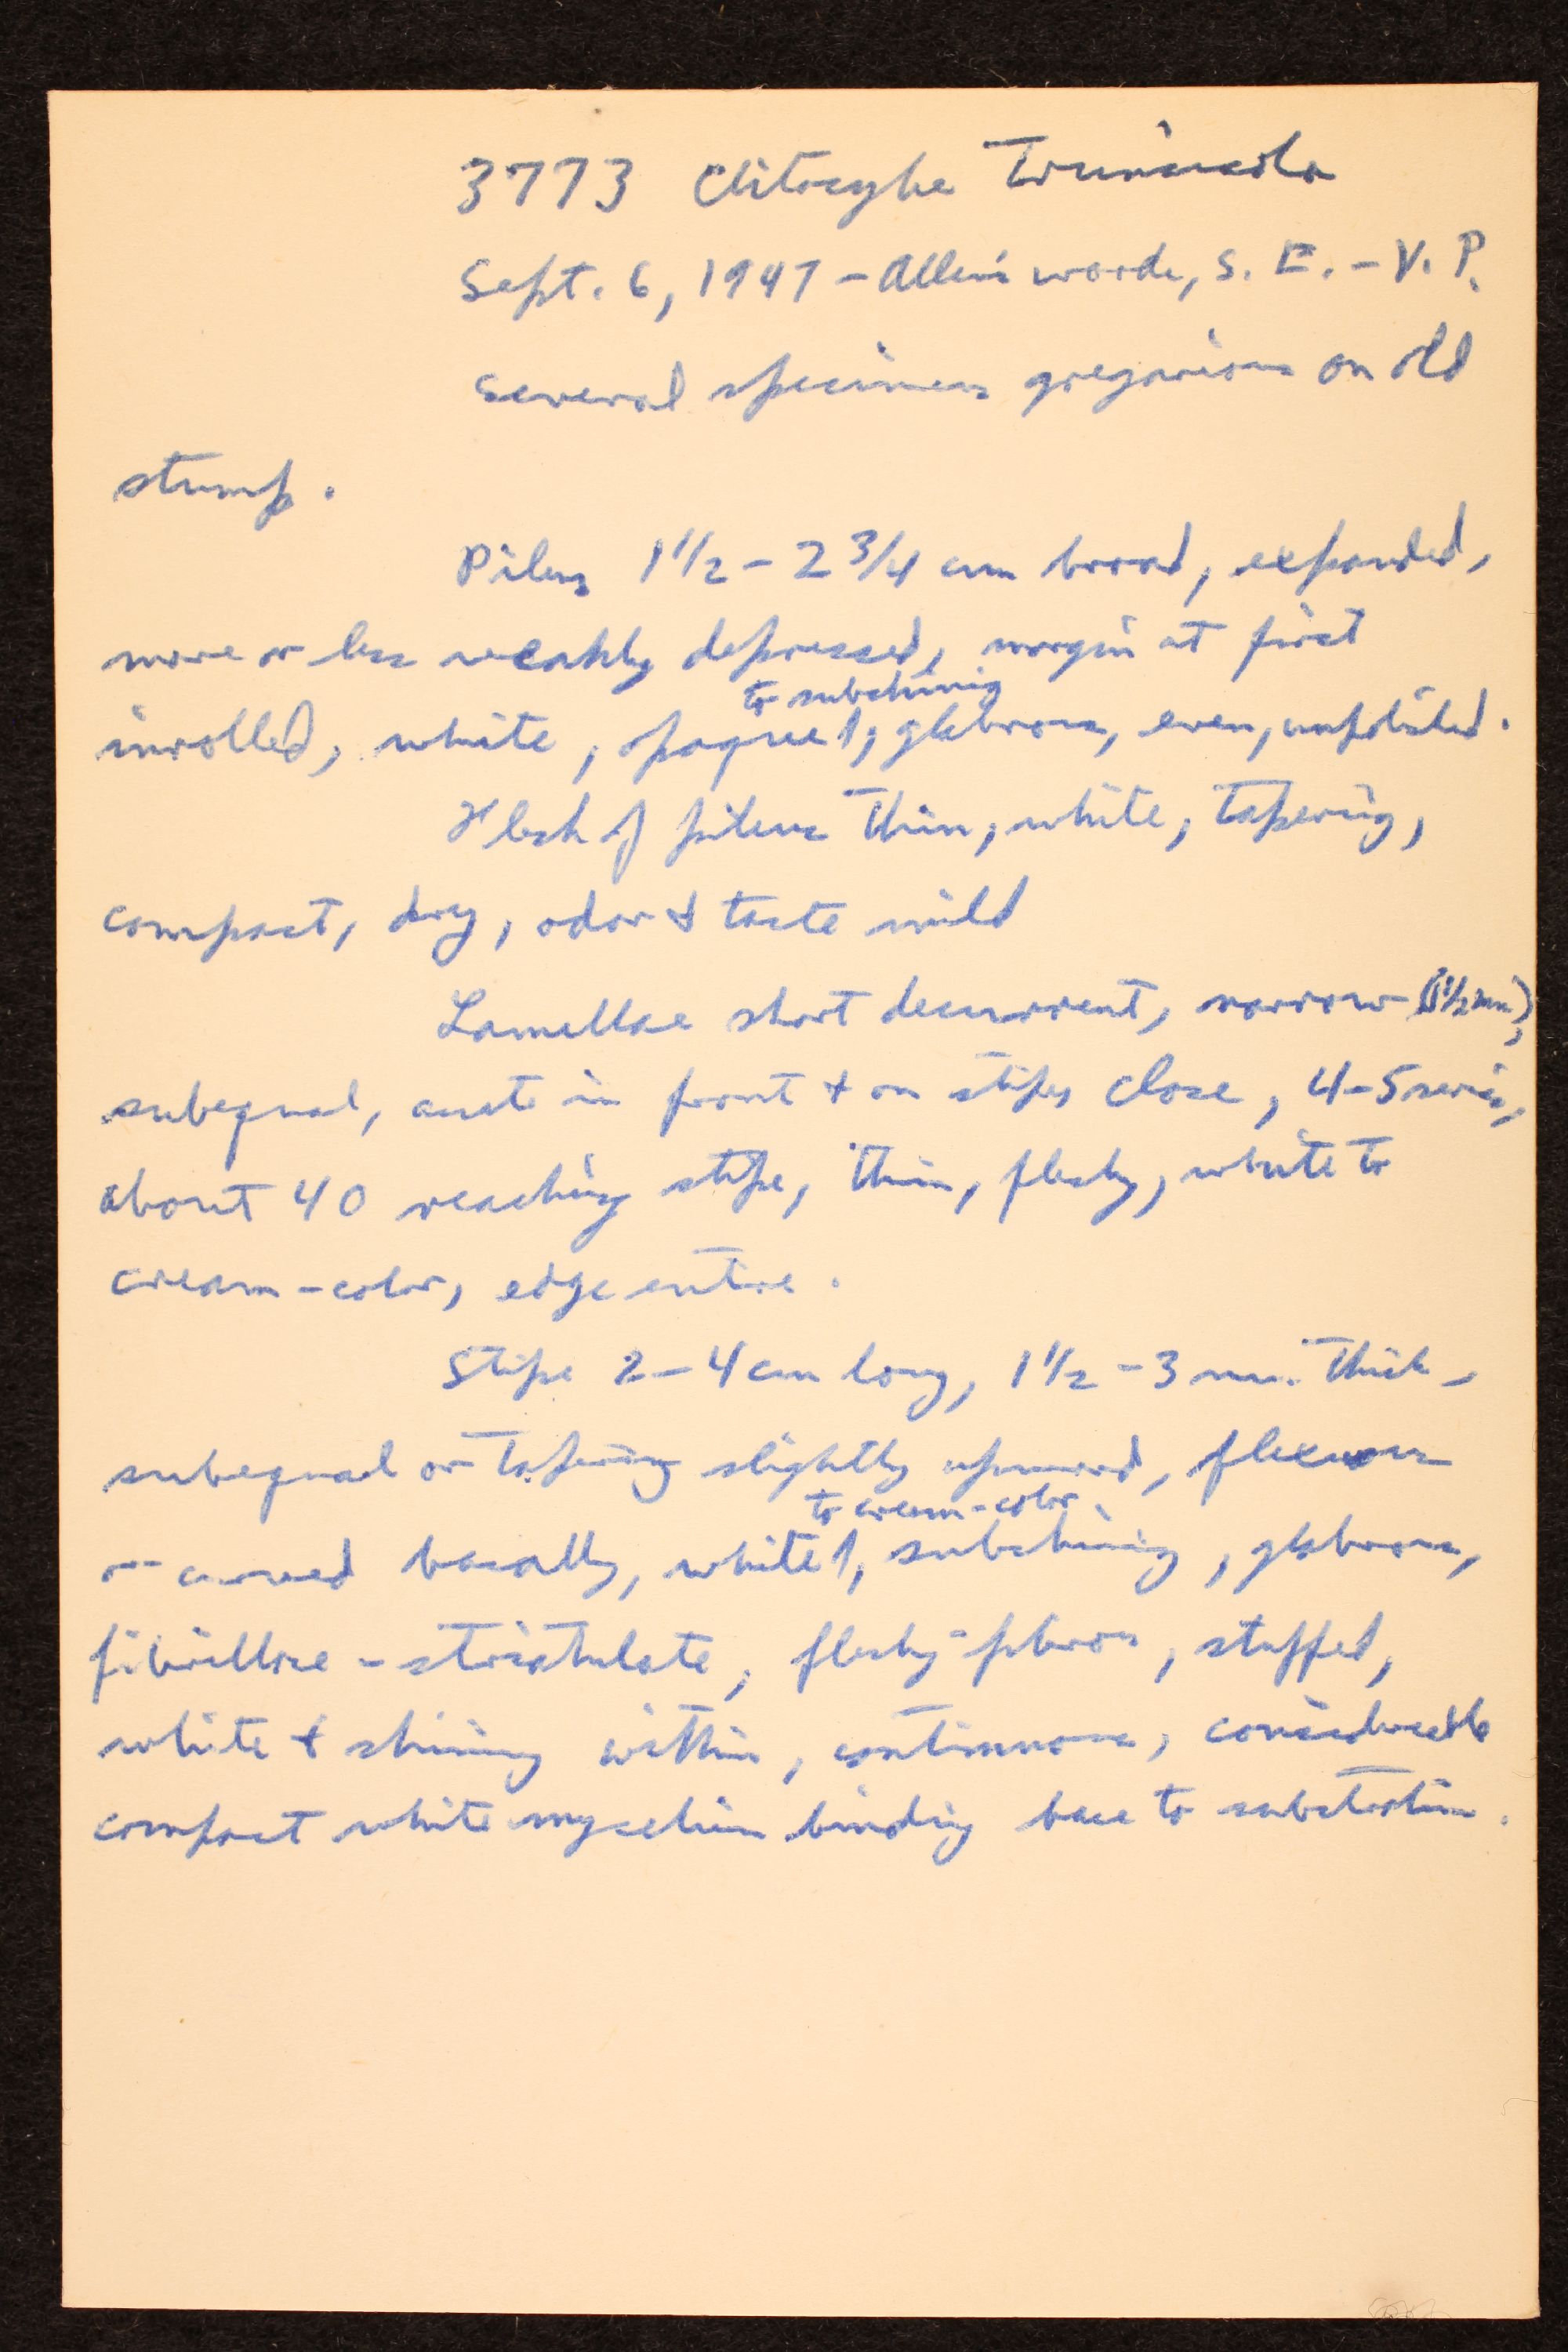 3773 Clitocybe truncicola
Sept. 6, 1947 - Allen's woods, S. E. - V. P.
Several specimens gregarious on old
stump.
Pileus 1 1/2 - 2 3/4 cm broad, expanded,
more or less weakly depressed, margin at first
to subshining
inrolled, white, opaque, glabrous, even, unpolished.
Flesh of pileus thin, white, tapering,
compact, dry, odor & taste mild
Lamellae short decurrent, narrow (1 1/2 mm),
subequal, acute in front & on stipe, close, 4-5 series,
about 40 reaching stipe, thin, fleshy, white to
cream-color, edge entire.
Stipe 2-4 cm long, 1 1/2 - 3 mm. thick,
subequal or tapering slightly upward, flexuous
to cream-color
or curved basally, white, subshining, glabrous,
fibrillose-striatulate, fleshy-fibrous, stuffed,
white & shining within, continuous, considerable
compact white mycelium binding base to substratum.